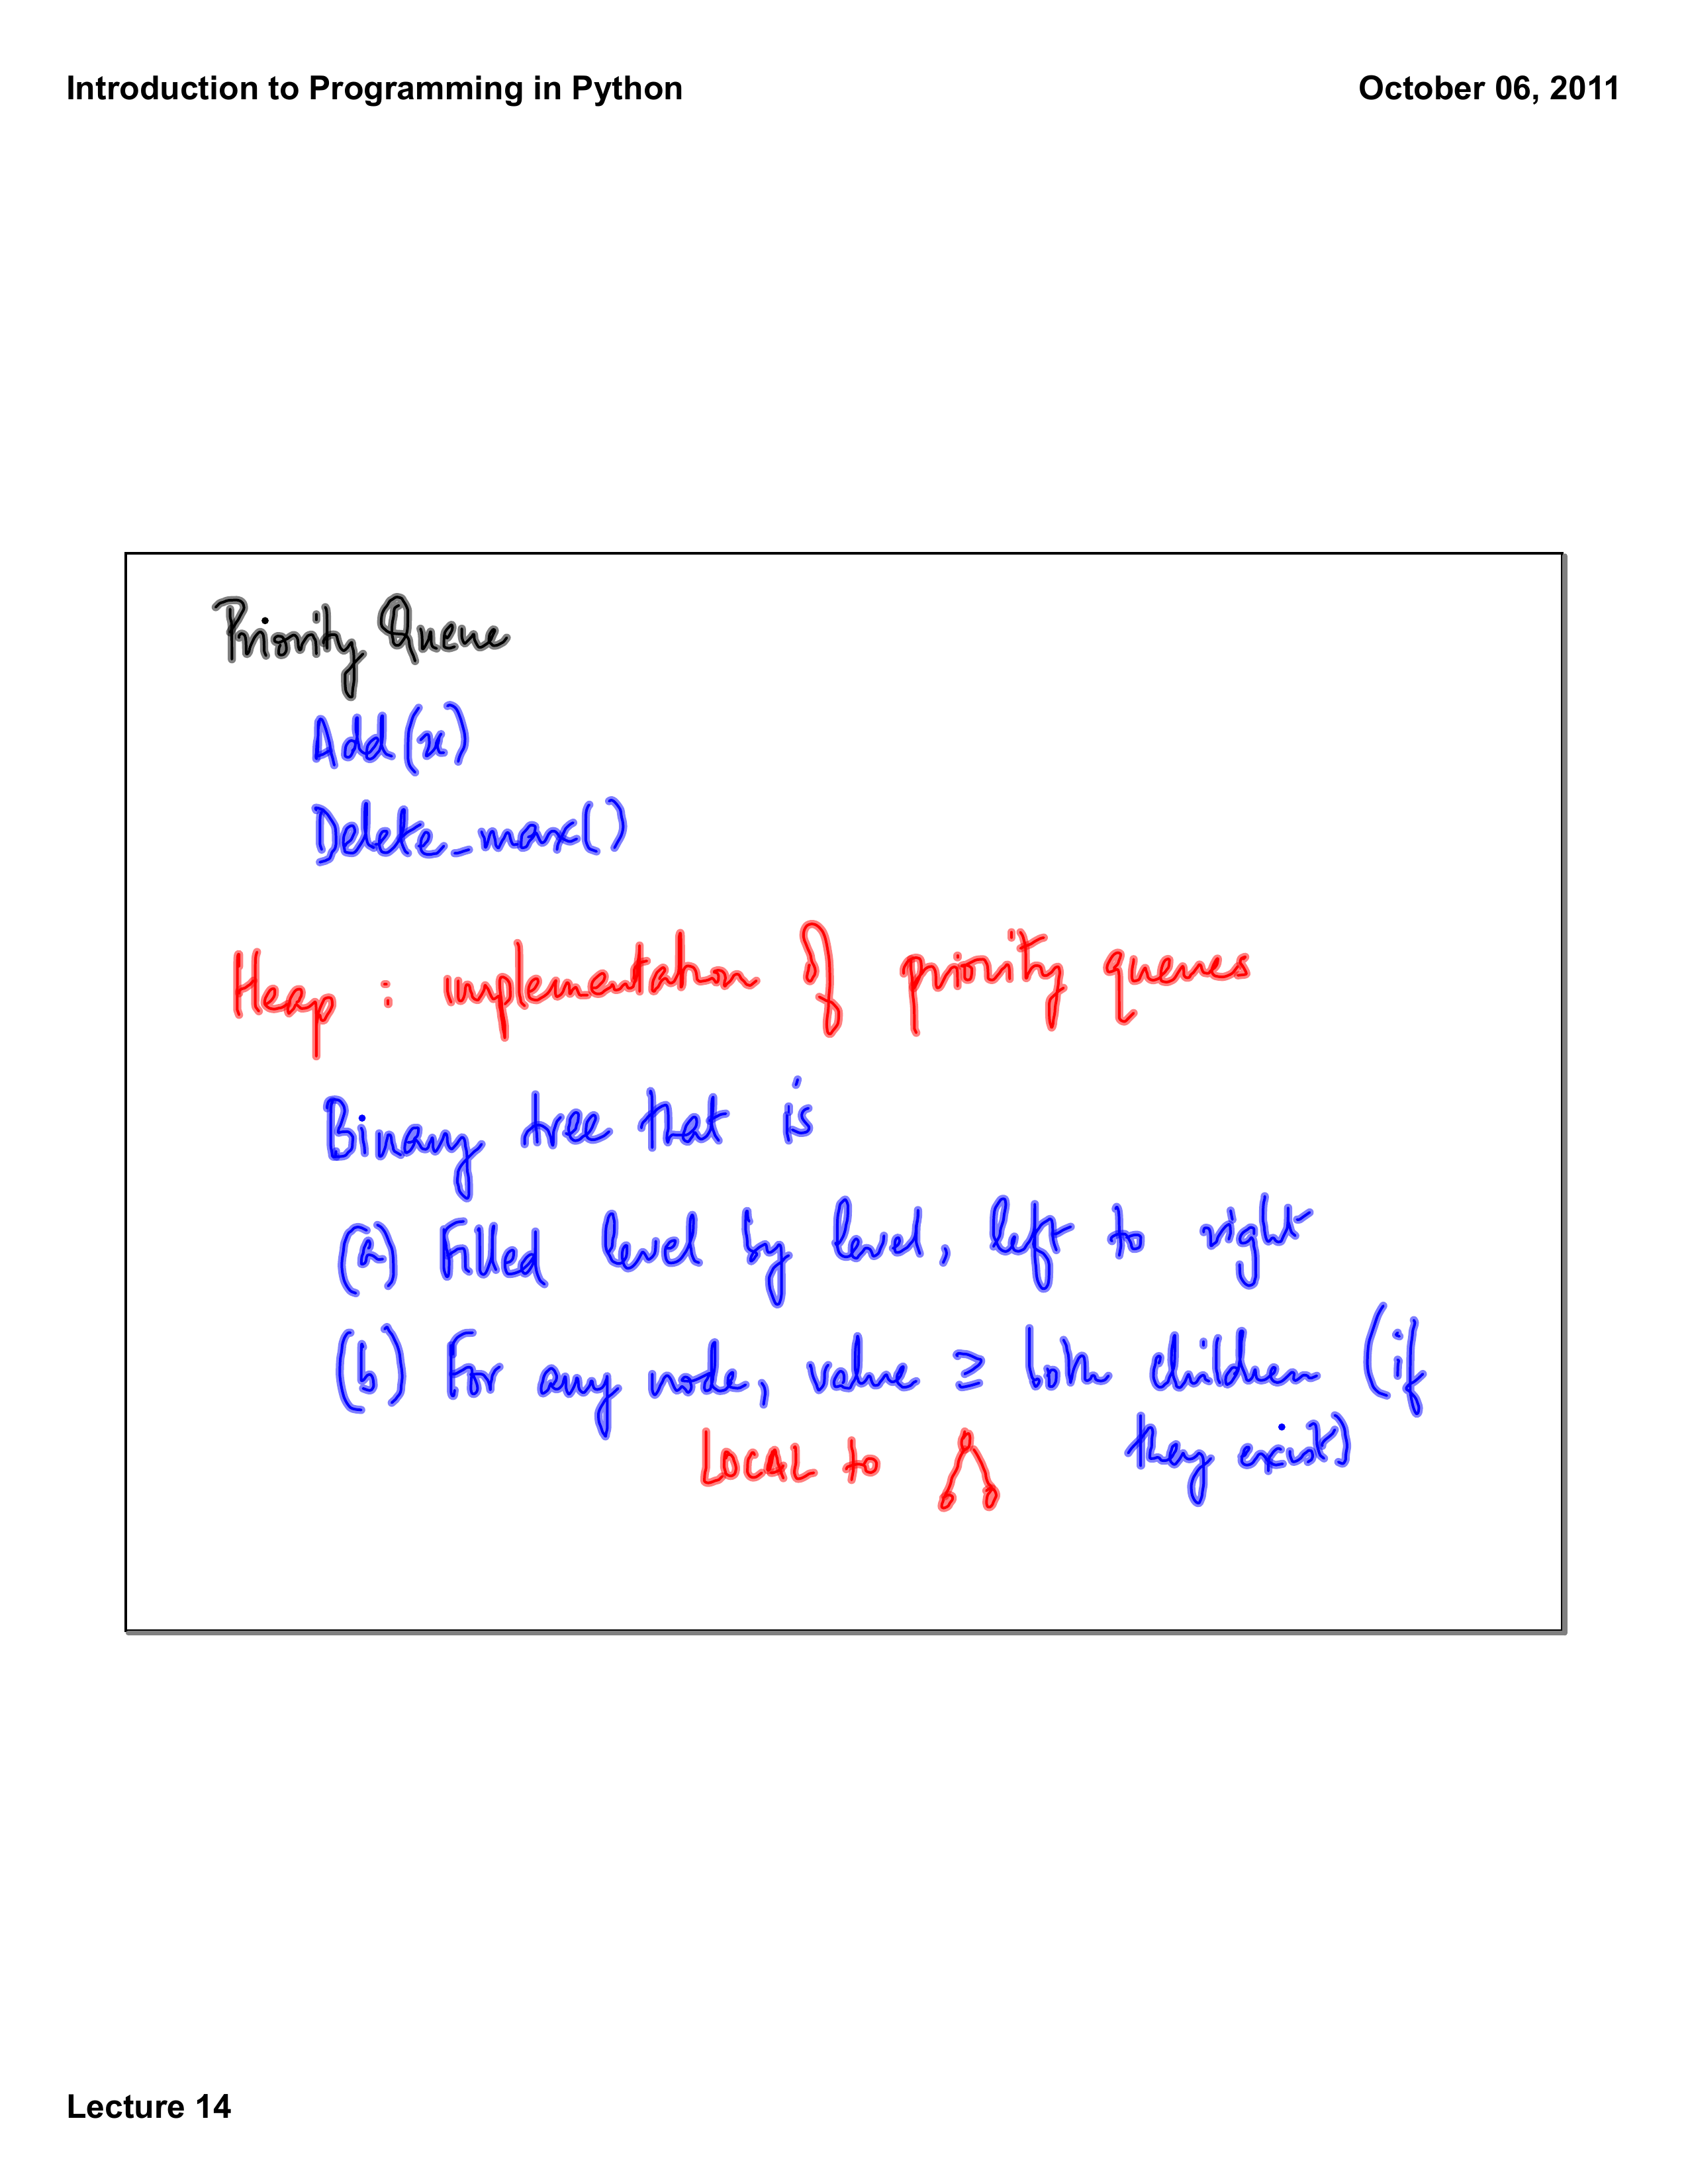 Introduction to Programming in Python
October 06, 2011
Priority Queue
Add(x)
Delete_max()
Heap : implementation of priority queues
Binary tree that is
(a) Filled level by level, left to right
(b) For any node, value ≥ both children (if
they exist)
LOCAL to
Lecture 14